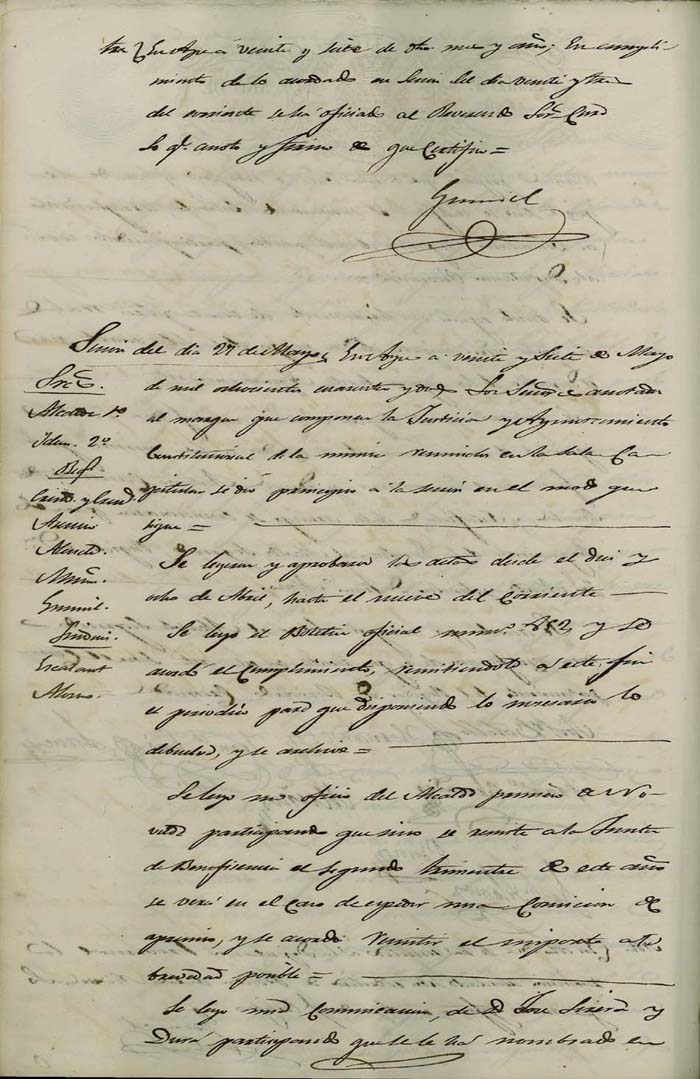 En Aspe á veinte y siete de dho. mes y año; En cumpli-
miento de lo acordado en Sesion del dia veinte y tres
del corriente se há oficiado al Reverendo Sor. Cura
Lo qe. anoto y firmo de que Certifico =
Gumiel
Sesion del dia 27 de Mayo
En Aspe a veinte y Siete de Mayo
de mil ochocientos cuarenta y dos; Los Señores anotados
al margen que componen la Justicia y Ayuntamiento
Constitucional de la misma reunidos en la Sala Ca-
pitular se dió principio á la sesion en el modo que
sigue =
Sres.
Alcalde 1º
Idem. 2º
Reg.
Asencio
Gumiel.
Sindicos.
Escalant
Alonso.
Se leyeron y aprobaron las actas desde el diez y
ocho de Abril, hasta el nueve del Corriente
Se leyó el Boletin oficial num.º 852, y se
acordó el Cumplimiento, remitiendolo á este fin
el periodico para que disponiendo lo necesario lo
debuelva, y se archive =
Se leyo un oficio del Alcalde primero de No-
velda participando que sino se remite a la Junta
de Beneficencia el segundo trimestre de este año
se verá en el Caso de expedir una Comicion de
apremio, y se acordó remitir el importe a la
brevedad posible =
Se leyo una Comunicacion, de D. Jose Sirera y
Dura participando que se le há nombrado en